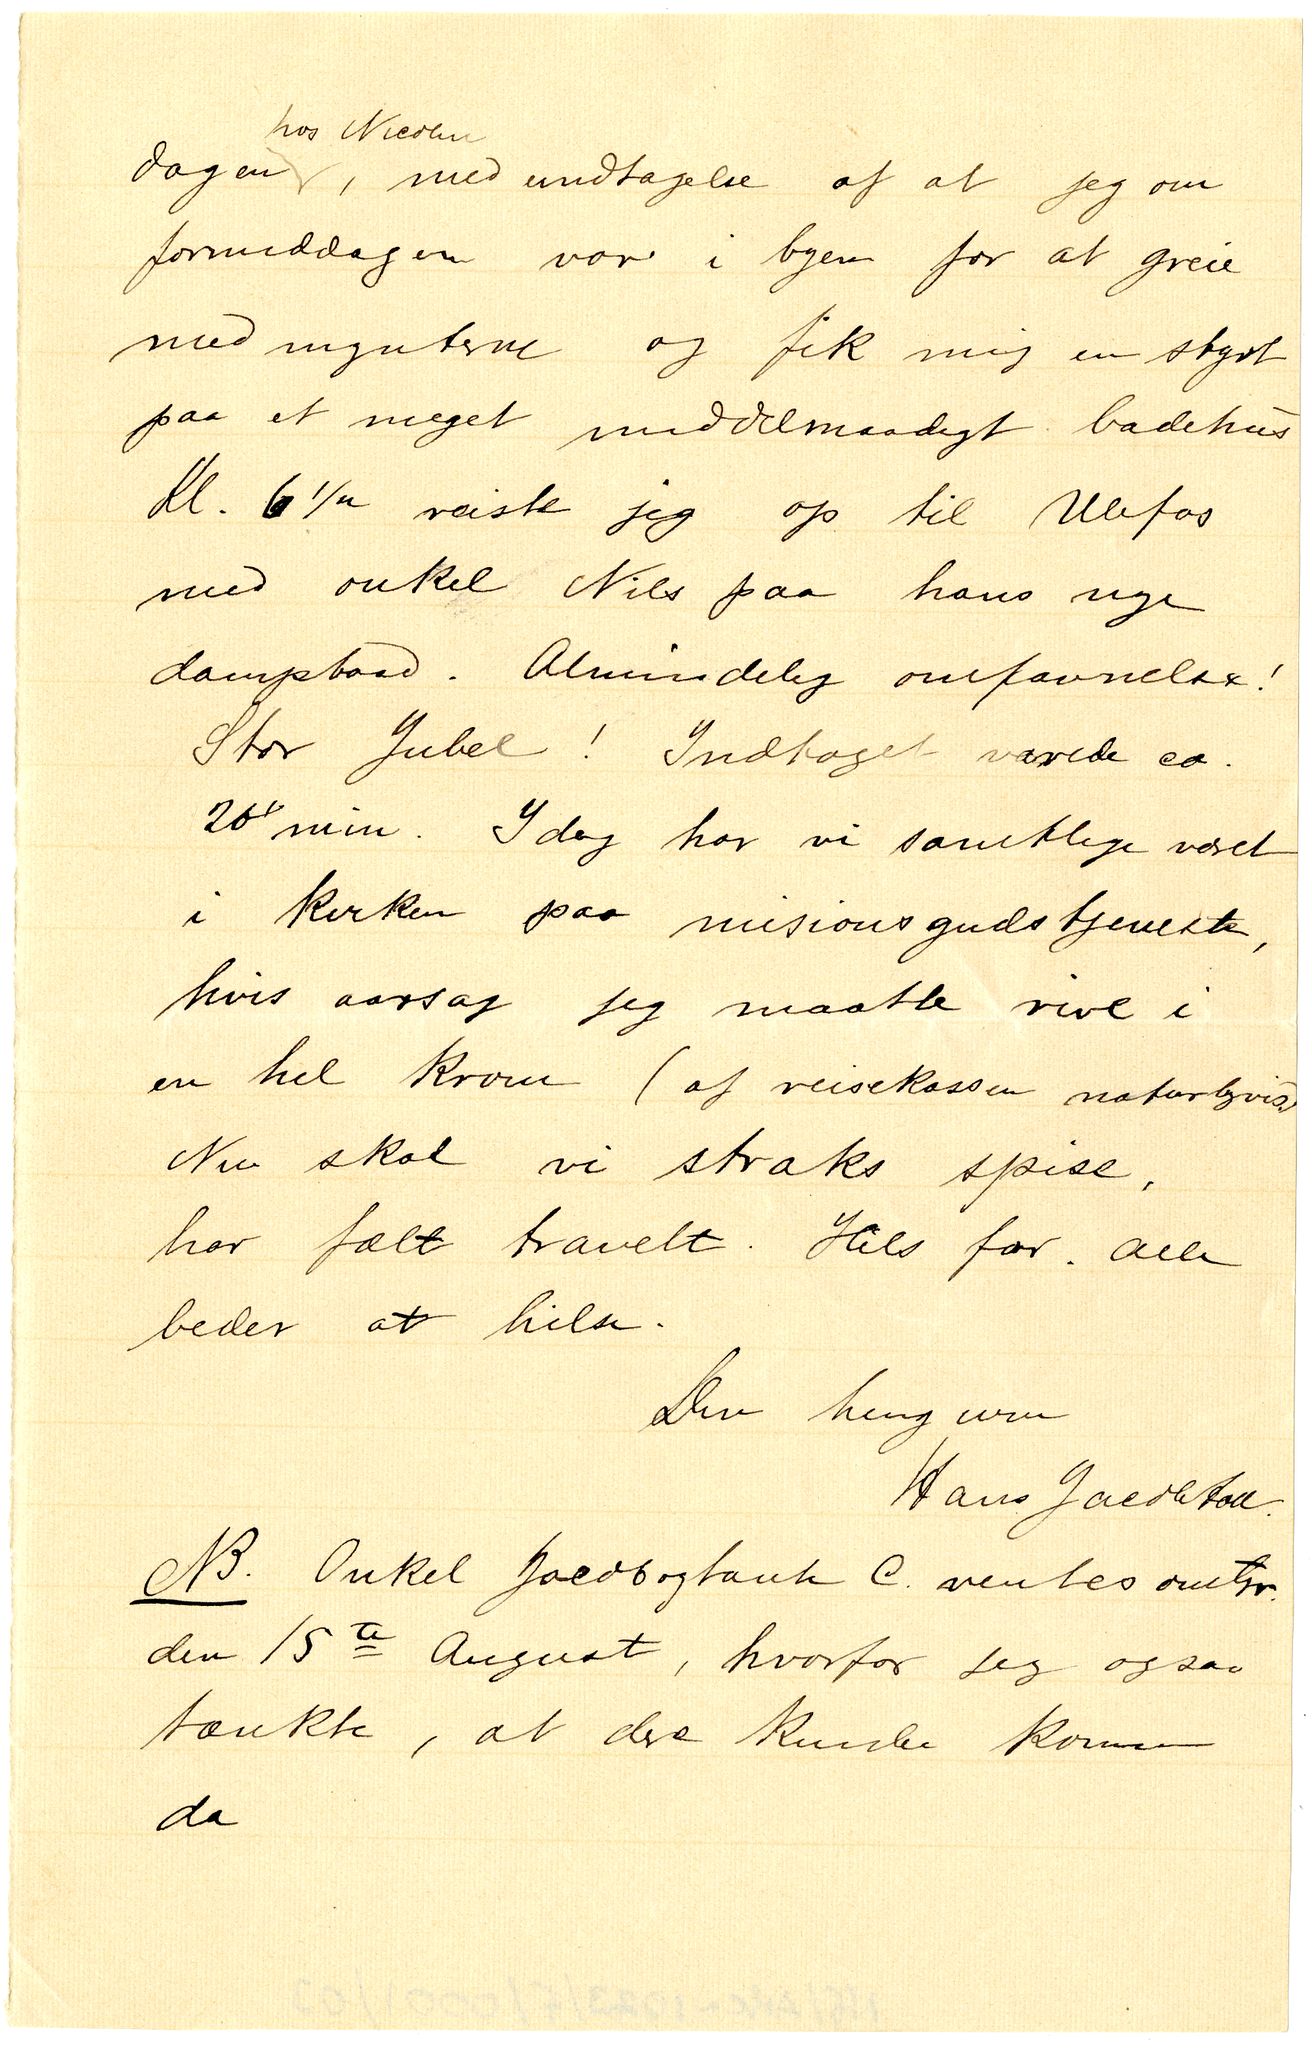 hos Nicolai
dagen, med undtagelse af at jeg om
formiddagen var i byen for at greie
med mynterne og fik mig en styrt
paa et meget middelmaadigt badehus
Kl. 6 1/2 reiste jeg op til Ulefos
med onkel Nils paa hans nye
dampbaad. Almindelig omfavnelse!
Stor Jubel! Indtoget varede ca.
20 min. I dag har vi samtlige været
i kirken paa misionsgudstjeneste,
hvis aarsag jeg maatte rive i
en hel krone (af reisekassen naturligvis)
Nu skal vi straks spise,
har fælt travelt. Hils far. Alle
beder at hilse.
Din hengivne
Hans Jacob
NB. Onkel Jacob og tante C. ventes omtr.
den 15te August, hvorfor jeg ogsaa
tænkte, at dere kunde komme
da